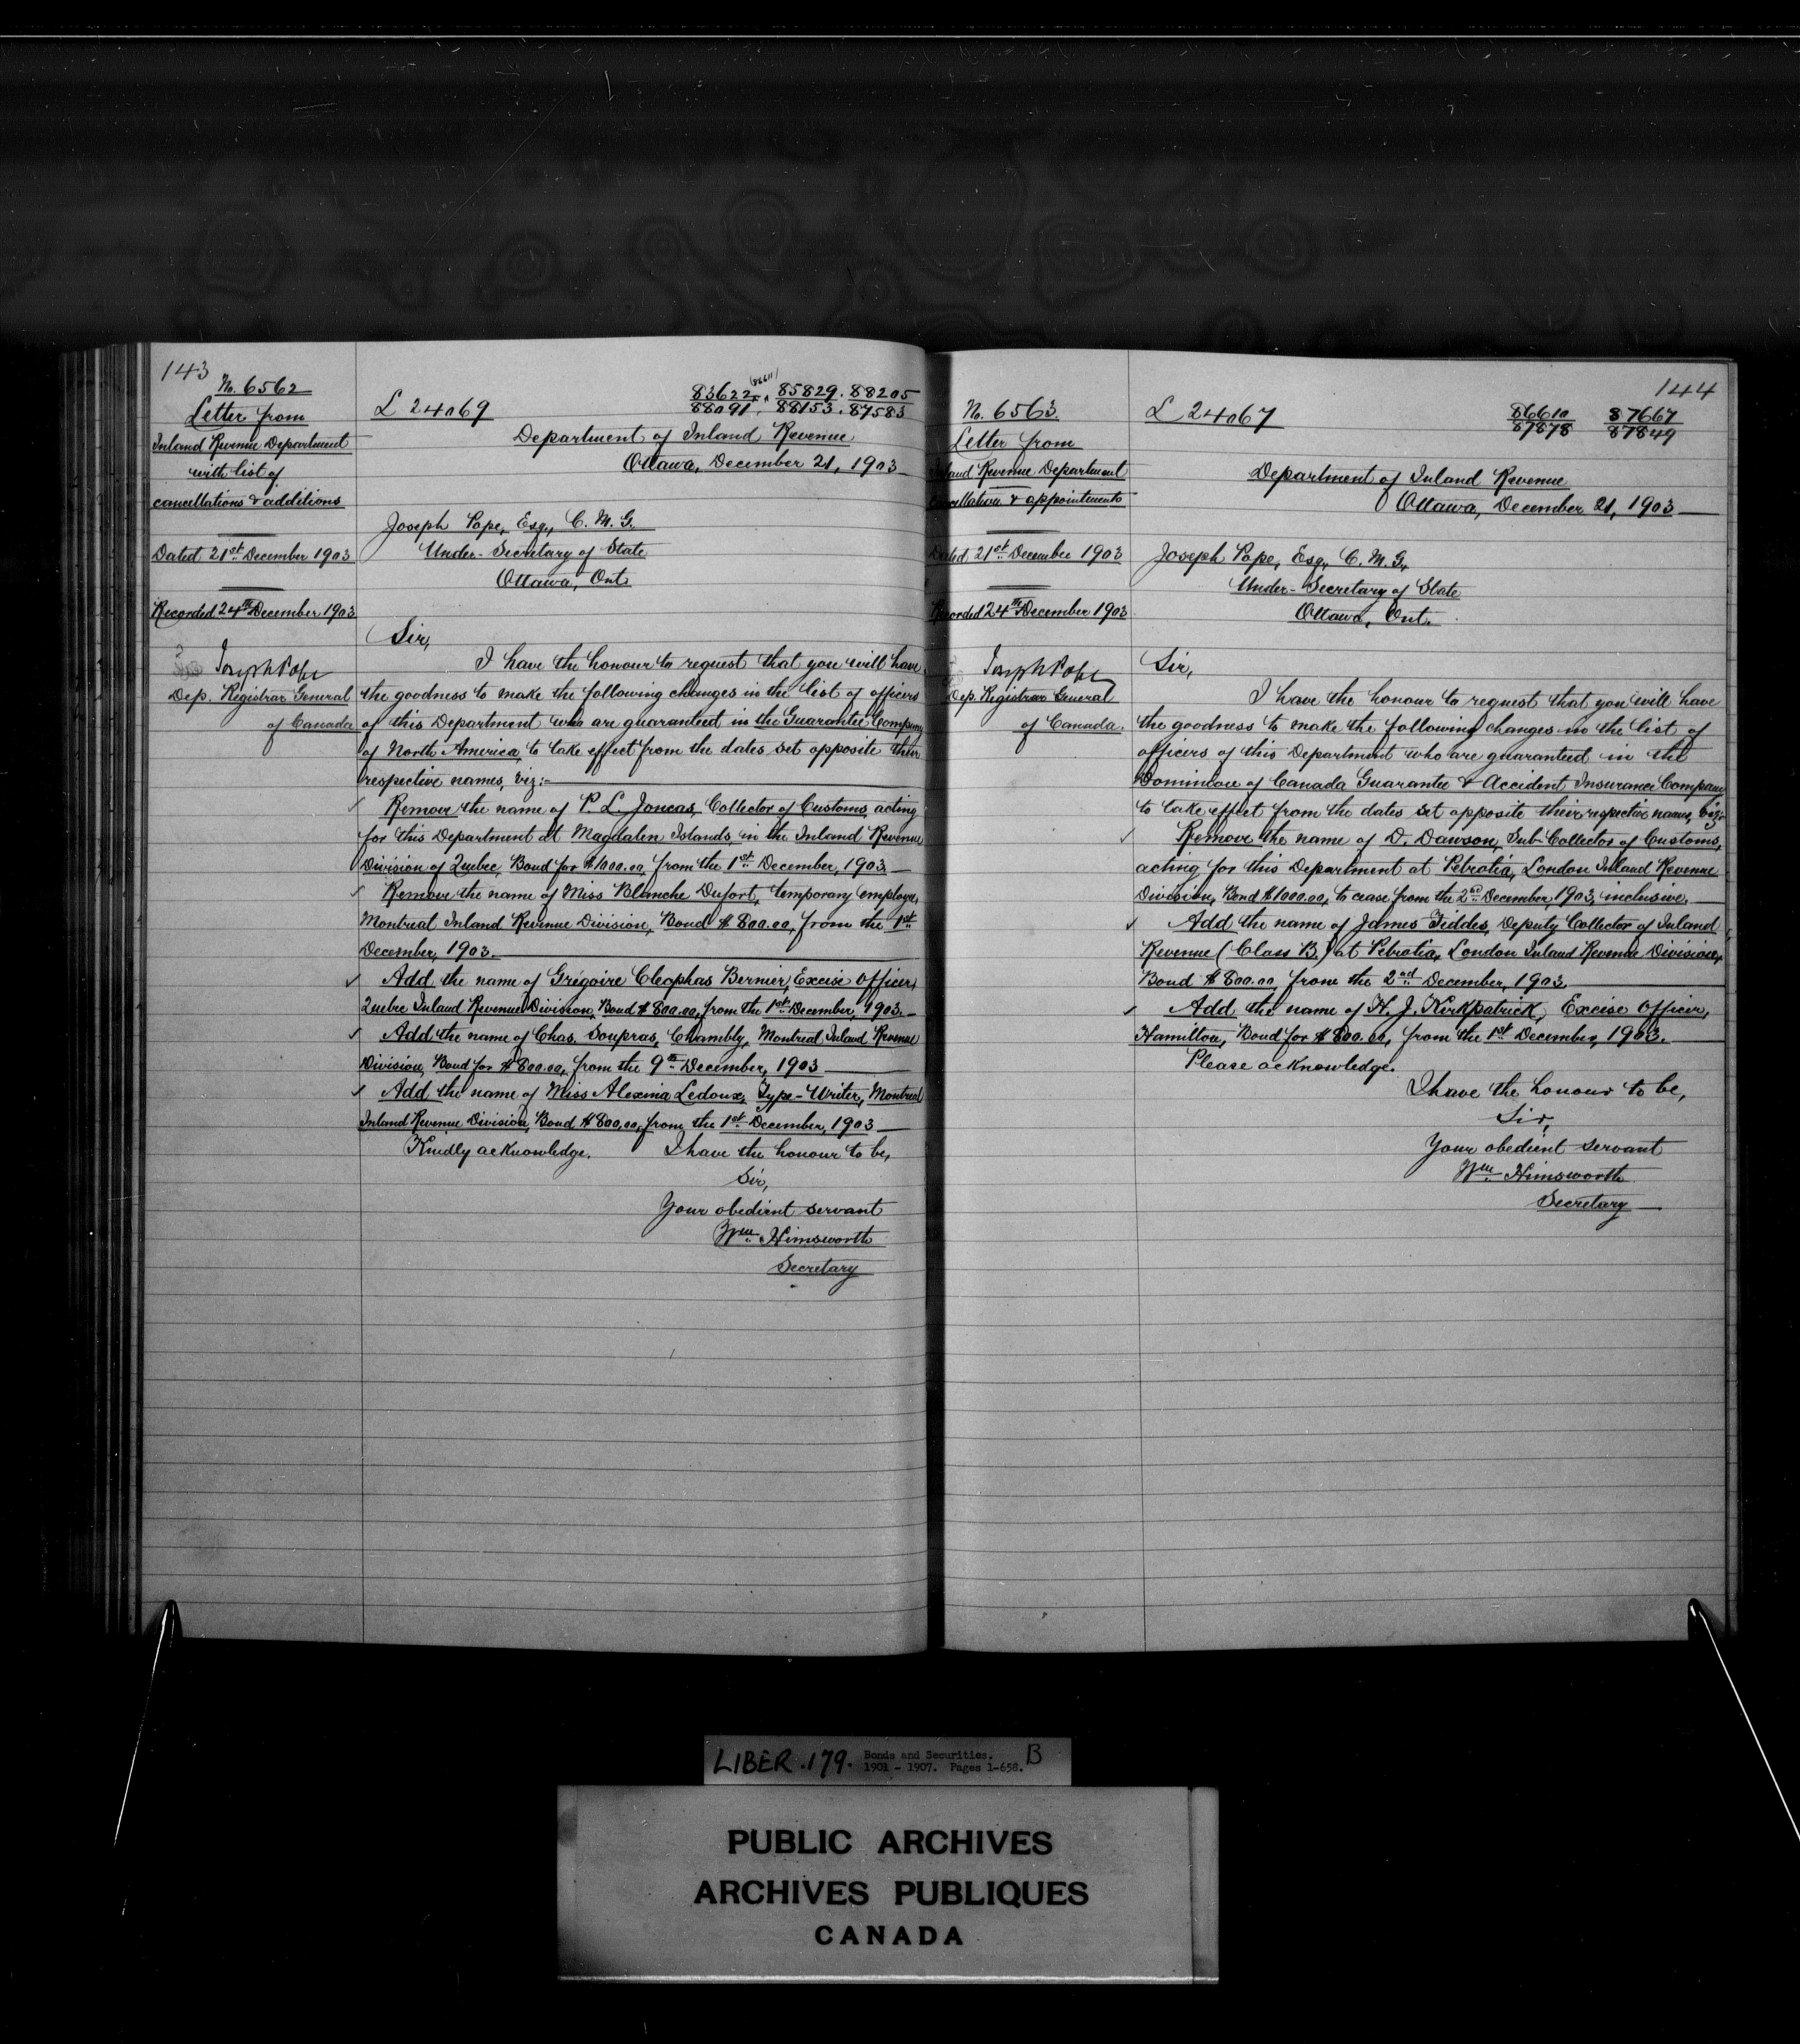 143
No. 6562
Letter from
Inland Revenue Department
with list of
cancellations & additions
Dated 21st December 1903
Recorded 24th December 1903
Joseph Pope
Dep. Registrar General
of Canada
L 24069
(86611)
83622. 85829. 88205
88091. 88153. 87583
Department of Inland Revenue
Ottawa, December 21, 1903
Joseph Pope, Esq., C. M. G.
Under-Secretary of State
Ottawa, Ont.
Sir,
I have the honour to request that you will have
the goodness to make the following changes in the list of officers
of this Department who are guaranteed in the Guarantee Company
of North America, to take effect from the dates set opposite their
respective names, viz:-
✓ Remove the name of P. L. Joncas, Collector of Customs, acting
for this Department at Magdalen Islands, in the Inland Revenue
Division of Quebec, Bond for $1000.00, from the 1st December, 1903
✓ Remove the name of Miss Blanche Dufort, temporary employe,
Montreal Inland Revenue Division, Bond $800.00, from the 1st
December, 1903.
✓ Add the name of Grégoire Cleophas Bernier, Excise Officer,
Quebec Inland Revenue Division, Bond $800.00, from the 1st December, 1903.
✓ Add the name of Chas. Soupras, Chambly, Montreal Inland Revenue
Division, Bond for $800.00, from the 9th December, 1903
✓ Add the name of Miss Alexina Ledoux, Type-Writer, Montreal
Inland Revenue Division, Bond $800.00, from the 1st December, 1903
Kindly acknowledge. I have the honour to be,
Sir,
Your obedient servant
Wm. Himsworth
Secretary
144
No. 6563.
Letter from
Inland Revenue Department
cancellation & appointments
Dated 21st December 1903
Recorded 24th December 1903
Joseph Pope
Dep. Registrar General
of Canada.
L 24067
86610 87667
87878 87849
Department of Inland Revenue
Ottawa, December 21, 1903
Joseph Pope, Esq., C. M. G.,
Under-Secretary of State
Ottawa, Ont.
Sir,
I have the honour to request that you will have
the goodness to make the following changes in the list of
officers of this Department who are guaranteed in the
Dominion of Canada Guarantee & Accident Insurance Company
to take effect from the dates set opposite their respective names, viz:-
✓ Remove the name of D. Dawson, Sub-Collector of Customs,
acting for this Department at Petrolia, London Inland Revenue
Division, Bond $1000.00, to cease from the 2nd December, 1903, inclusive.
✓ Add the name of James Fiddes, Deputy Collector of Inland
Revenue (Class B.) at Petrolia, London Inland Revenue Division,
Bond $800.00 from the 2nd December, 1903.
✓ Add the name of H. J. Kirkpatrick, Excise Officer,
Hamilton, Bond for $800.00, from the 1st December, 1903.
Please acknowledge.
I have the honour to be,
Sir,
Your obedient servant
Wm. Himsworth
Secretary
LIBER .179. Bonds and Securities. B
1901 - 1907. Pages 1-658.
PUBLIC ARCHIVES
ARCHIVES PUBLIQUES
CANADA